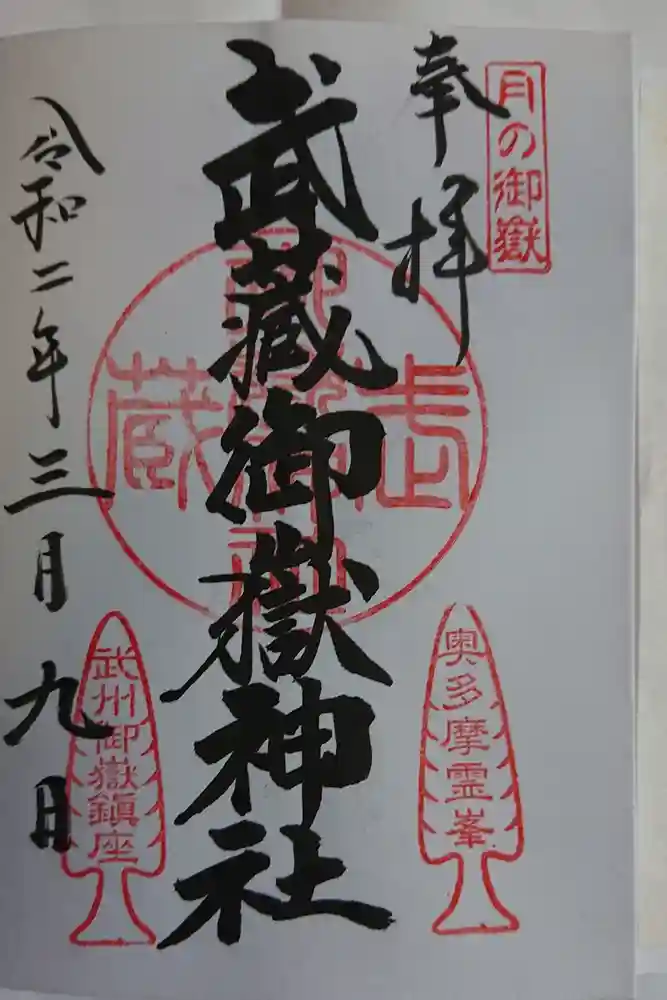 月の御嶽
奉拝
武蔵御嶽神社
奥多摩霊峯
武蔵
武州御嶽鎮座
令和二年三月九日